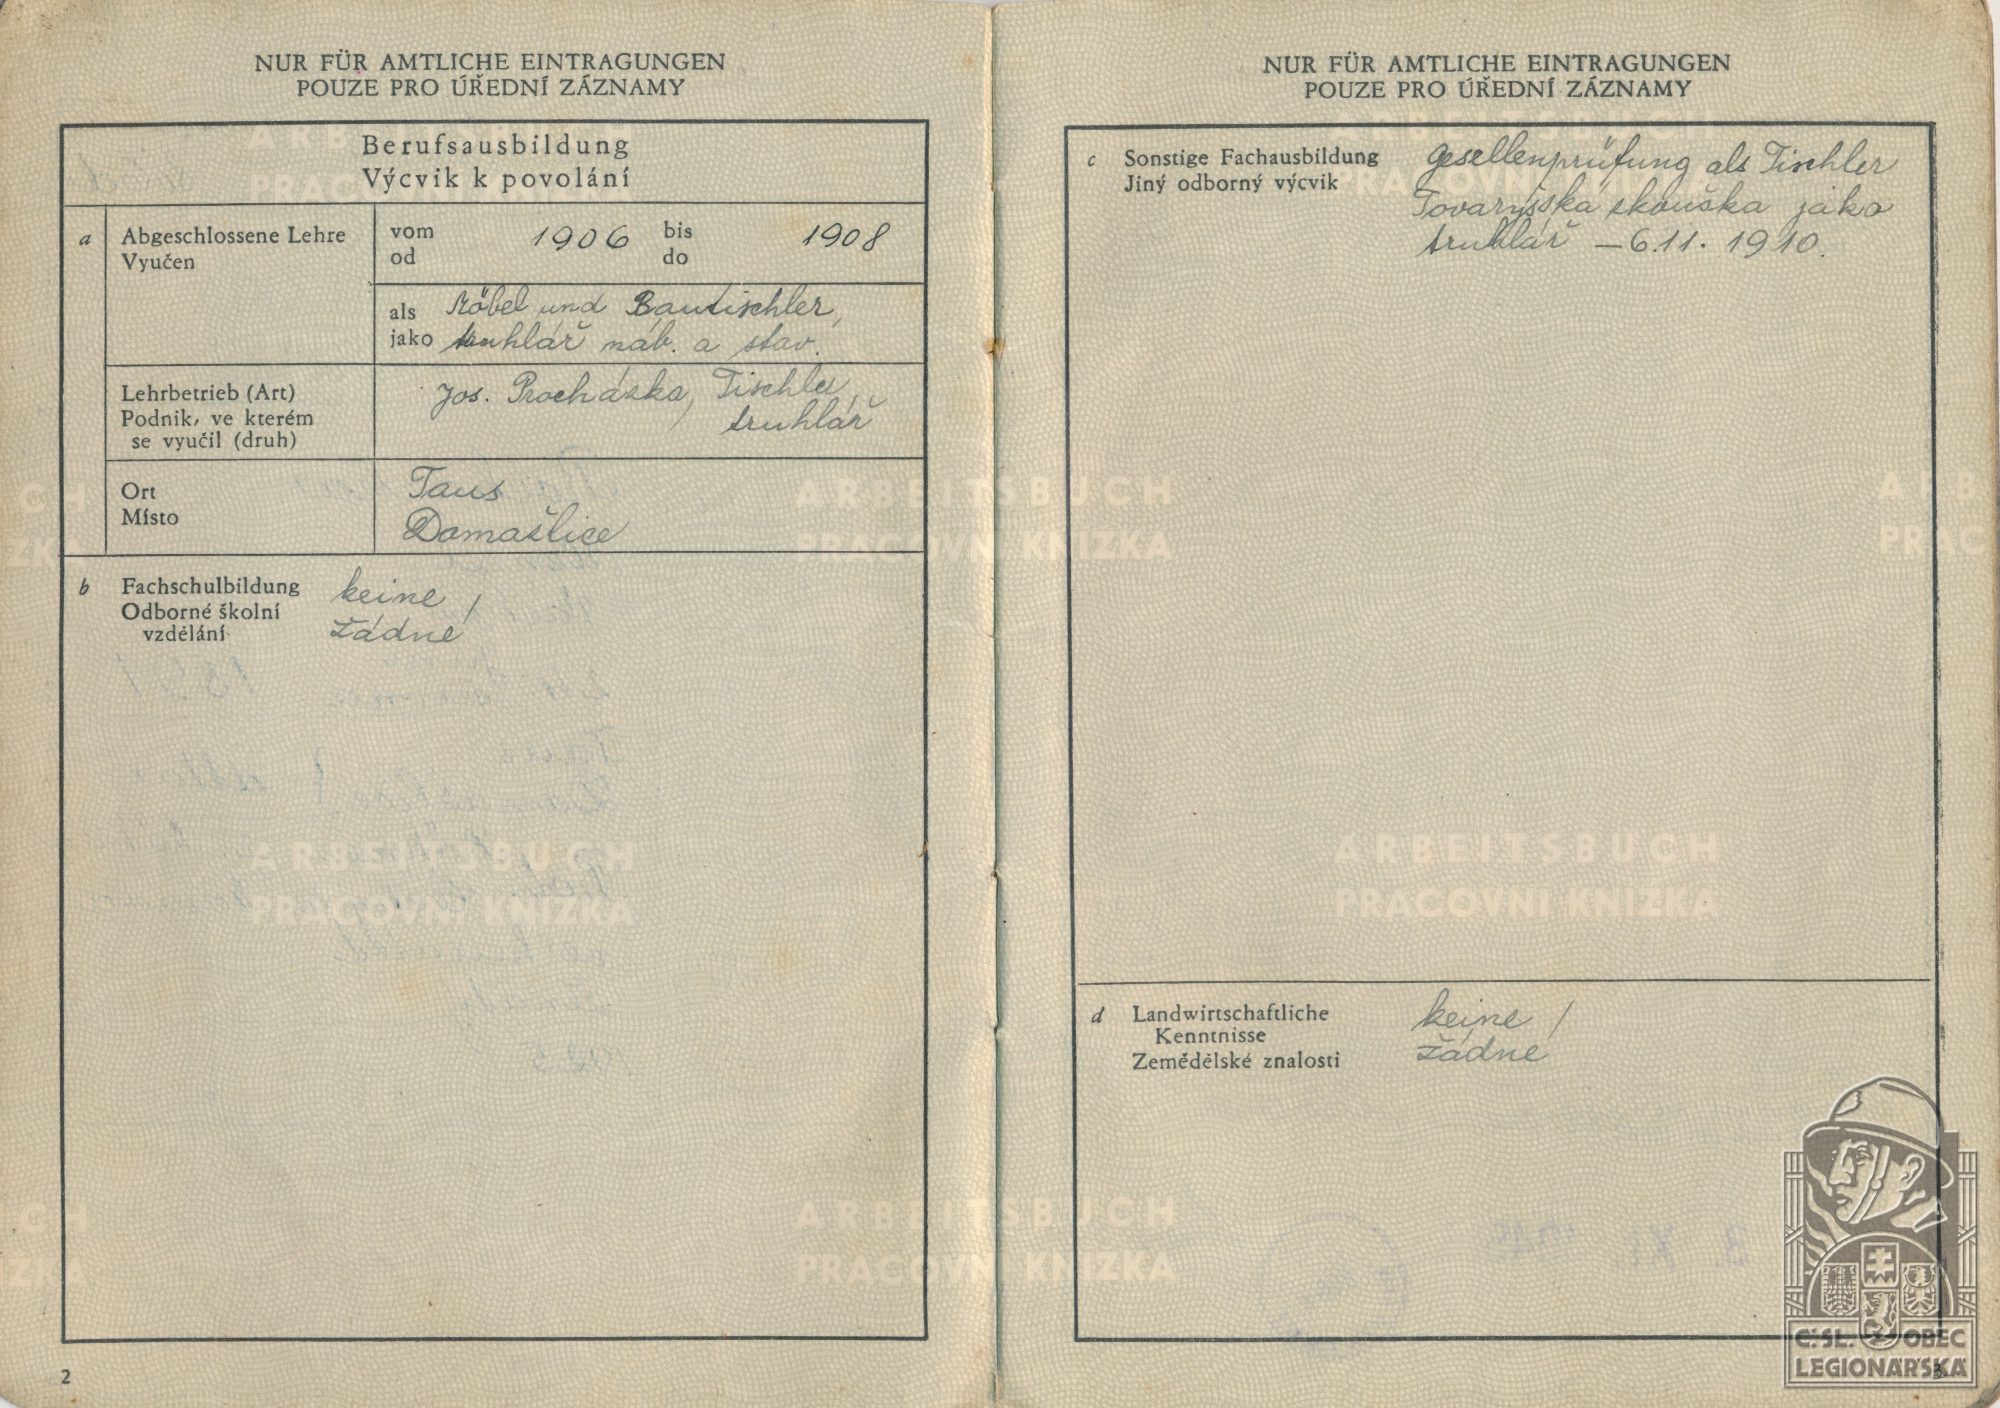 NUR FÜR AMTLICHE EINTRAGUNGEN
POUZE PRO ÚŘEDNÍ ZÁZNAMY
Berufsausbildung
Výcvik k povolání
a Abgeschlossene Lehre
Vyučen
vom 1906 bis 1908
od do
als Möbel und Bautischler,
jako truhlář náb. a stav.
Lehrbetrieb (Art)
Podnik, ve kterém
se vyučil (druh)
Jos. Procházka, Tischler,
truhlář
Ort
Místo
Taus
Domažlice
b Fachschulbildung
Odborné školní
vzdělání
keine /
žádné
2
NUR FÜR AMTLICHE EINTRAGUNGEN
POUZE PRO ÚŘEDNÍ ZÁZNAMY
c Sonstige Fachausbildung
Jiný odborný výcvik
Gesellenprüfung als Tischler
Tovaryšská skouška jako
truhlář – 6.11. 1910.
d Landwirtschaftliche
Kenntnisse
Zemědělské znalosti
keine /
žádné
3
ARBEITSBUCH
PRACOVNI KNIZKA
ARBEITSBUCH
PRACOVNI KNIZKA
ARBEITSBUCH
PRACOVNI KNIZKA
ARBEITSBUCH
PRACOVNI KNIZKA
ARBEITSBUCH
PRACOVNI KNIZKA
ARBEITSBUCH
PRACOVNI KNIZKA
Č.SL. OBEC
LEGIONÁŘSKÁ